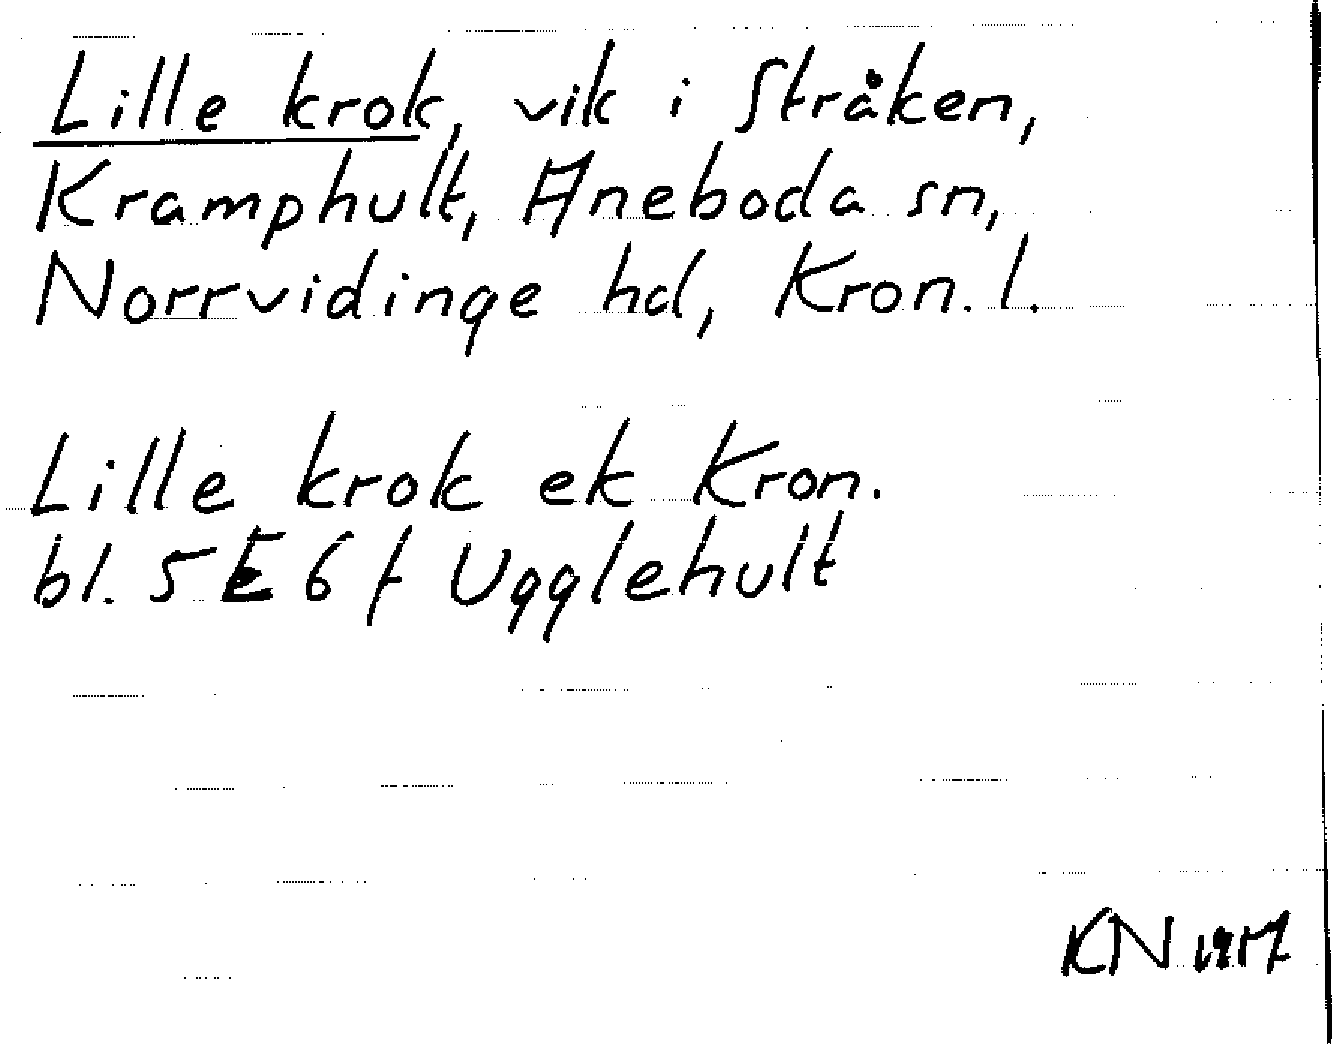 Lille krok, vik i Stråken,
Kramphult, Aneboda sn,
Norrvidinge hd, Kron. l.
Lille krok ek Kron.
bl. 5 E 6 f Ugglehult
KN